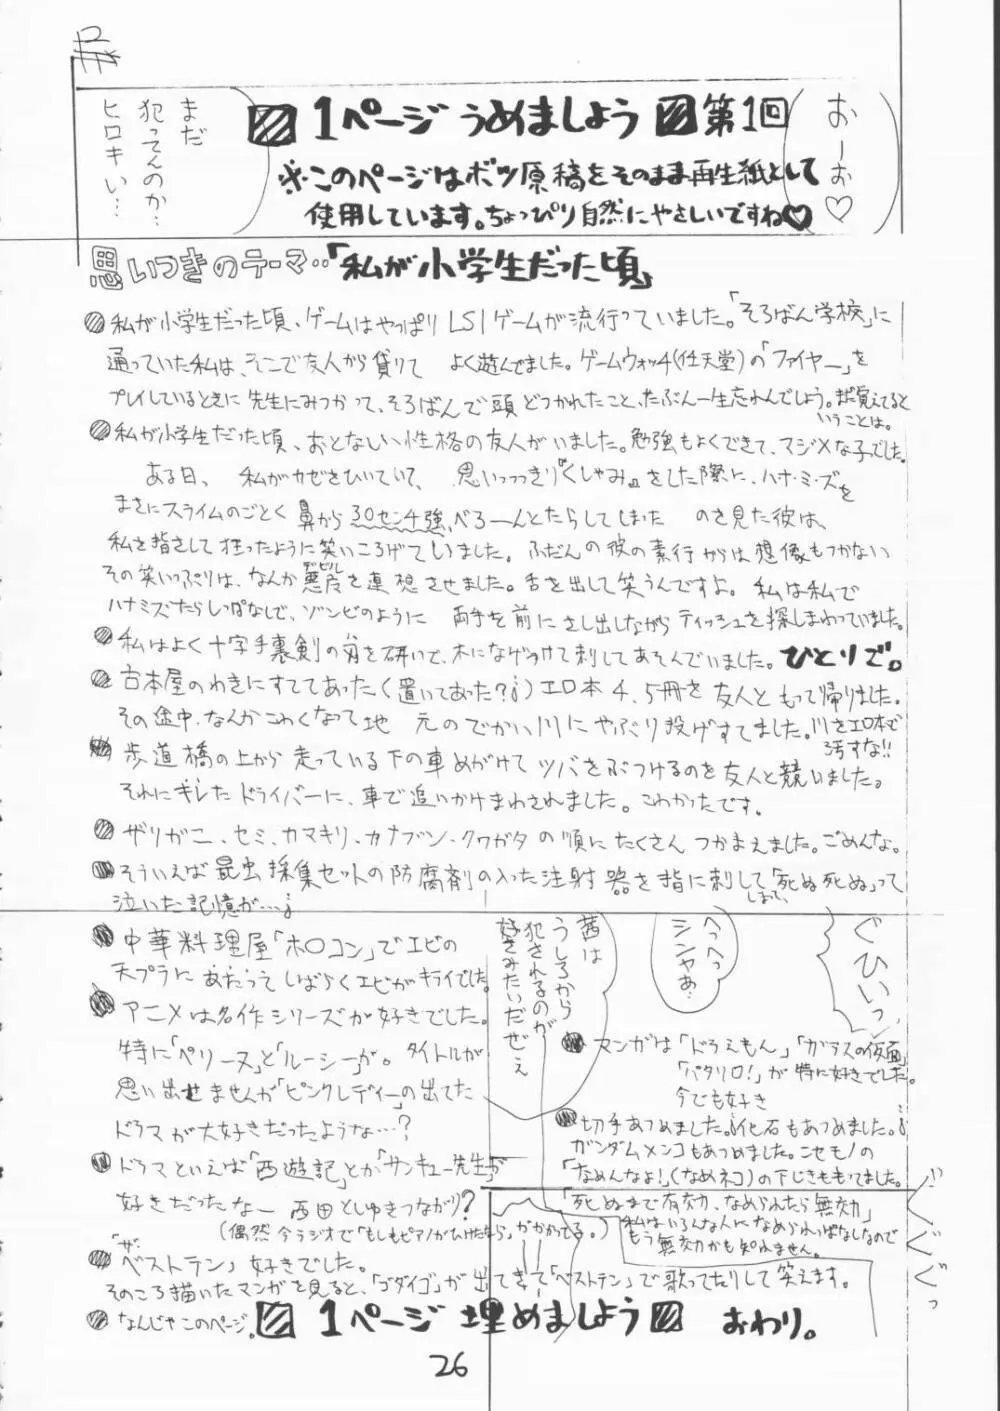 まだ
犯ってんのか…
ヒロキい…
おーお♡
1ページうめましょう 第1回
※このページはボツ原稿をそのまま再生紙として
使用しています。ちょっぴり自然にやさしいですね♡
思いつきのテーマ‥「私が小学生だった頃」
私が小学生だった頃、ゲームはやっぱりLSIゲームが流行っていました。「そろばん学校」に
通っていた私は、そこで友人から貸りて よく遊んでました。ゲームウォッチ(任天堂)の「ファイヤー」を
プレイしているときに先生にみつかって、そろばんで頭どつかれたこと、たぶん一生忘れんでしょう。まだ覚えてると
いうことは。
私が小学生だった頃、おとなしい性格の友人がいました。勉強もよくできて、マジメな子でした。
ある日、 私がカゼをひいていて、 思いっっっきり『くしゃみ』をした際に、ハナ・ミ・ズを
まさにスライムのごとく鼻から30センチ強、べろーんとたらしてしまった のを見た彼は、
私を指さして狂ったように笑いころげていました。ふだんの彼の素行からは想像もつかない
その笑いっぷりは、なんか悪魔を連想させました。舌を出して笑うんですよ。私は私で
デビル
ハナミズたらしっぱなしで、ゾンビのように 両手を前にさし出しながらティッシュを探しまわっていました。
私はよく十字手裏剣の刃を研いで、木になげつけて刺してあそんでいました。ひとりで。
古本屋のわきにすててあった(置いてあった?)エロ本4、5冊を友人ともって帰りました。
その途中、なんかこわくなって地 元のでかい川にやぶり投げすてました。川をエロ本で
汚すな!!
歩道橋の上から走っている下の車めがけてツバをぶつけるのを友人と競いました。
それにキレたドライバーに、車で追いかけまわされました。こわかったです。
ザリガニ、セミ、カマキリ、カナブン・クワガタの順にたくさんつかまえました。ごめんな。
そういえば昆虫採集セットの防腐剤の入った注射器を指に刺して「死ぬ死ぬ」って
しまって、
泣いた記憶が…。
中華料理屋「ホ〇コン」でエビの
天プラにあたってしばらくエビがキライでした。
アニメは名作シリーズが好きでした。
特に「ペリーヌ」と「ルーシー」が。タイトルが
思い出せませんが「ピンクレディー」の出てた
ドラマが大好きだったような…?
ドラマといえば「西遊記」とか「サンキュー先生」が
好きだったなー 西田としゆきつながり?
(偶然今ラジオで「もしもピアノがひけたなら」がかかってる。)
「ザ・
ベストテン」好きでした。
そのころ描いたマンガを見ると、「ゴダイゴ」が出てきて「ベストテン」で歌ってたりして笑えます。
なんじゃこのページ。
茜は
うしろから
犯されるのが
好きみたいだぜぇ
へっへっ
シンヤぁ…
ぐひいっ
マンガは「ドラえもん」「ガラスの仮面」
「パタリロ!」が特に好きでした。
今でも好き
切手あつめました。化石もあつめました。
ガンダムメンコもあつめました。ニセモノの
「なめんなよ!」(なめネコ)の下じきももってました。
「死ぬまで有効、なめられたら無効」
私はいろんな人になめられっぱなしなので
もう無効かも知れません。
ぐぐぐっ
1ページ埋めましょう おわり。
26